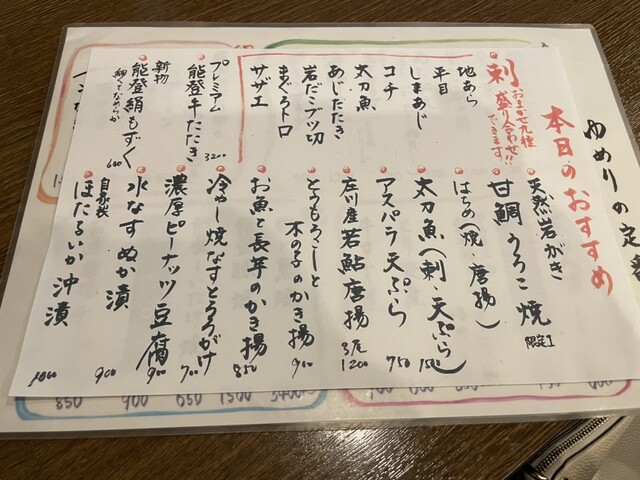 本日のおすすめ
刺
おまかせ九種
盛り合わせ!!
できます!
地あら
平目
しまあじ
コチ
太刀魚
あじたたき
岩だこブツ切
まぐろトロ
サザエ
プレミアム
能登牛たたき 3200
新物
能登絹もずく
細くてなめらか
600
天然岩がき
甘鯛うろこ焼 限定1
はちめ(焼・唐揚)
太刀魚(刺・天ぷら) 1500
アスパラ天ぷら 750
庄川産若鮎唐揚 3尾 1200
とうもろこしと
木の子のかき揚 900
お魚と長芋のかき揚 850
冷やし焼なすとろろがけ 700
濃厚ピーナッツ豆腐 900
水なすぬか漬 900
自家製
ほたるいか沖漬 1000
ゆめりの定
850 900 650 1500 3400